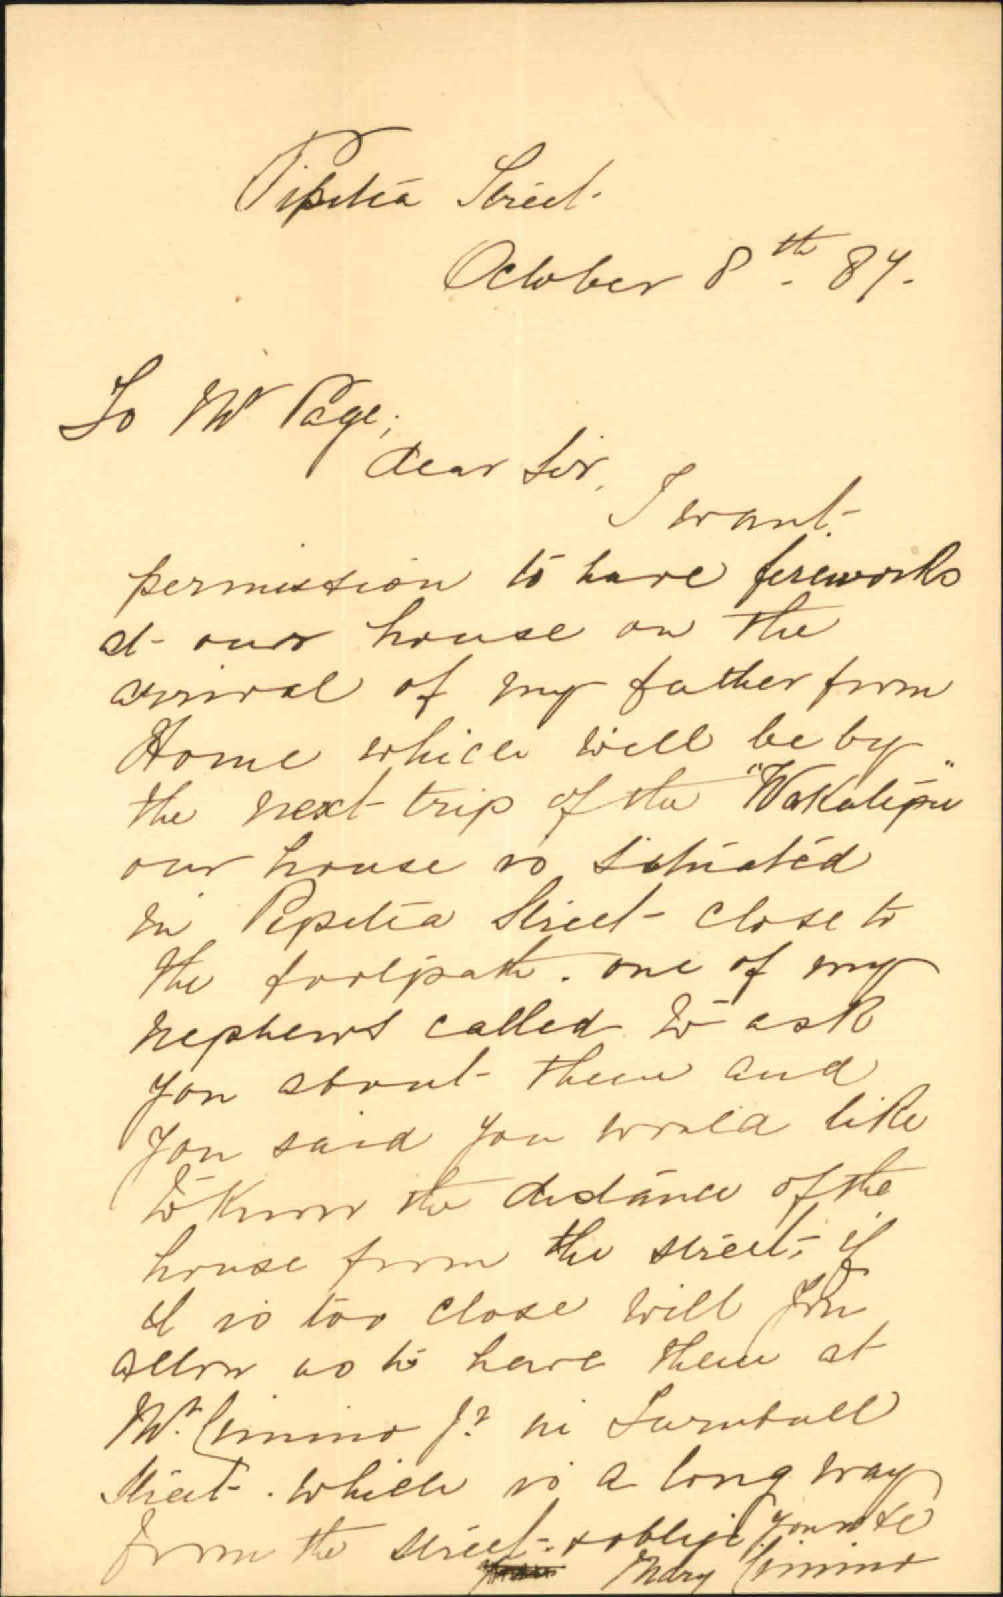 Pipitea Street.
October 8th. 87.
To Mr Page;
dear Sir,
I want.
permission to have fireworks
at our house on the
arrival of my father from
Home which will be by
the next trip of the "Wakatipu"
our house is situated
in Pipitea Street close to
the footpath. one of my
nephews called to ask
you about them and
you said you would like
to know the distance of the
house from the street, if
it is too close will you
allow us to have them at
Mr. Cimino Jr in Turnbull
Street. which is a long way
from the street. & oblige yours &c
Mary Cimino